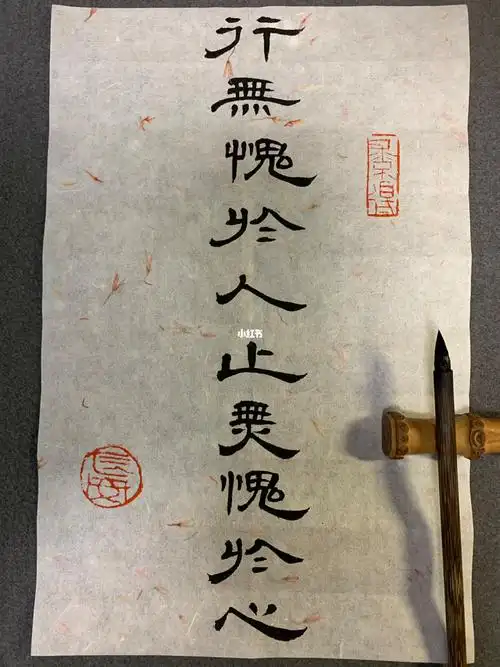 行無愧於人止無愧於心
小红书